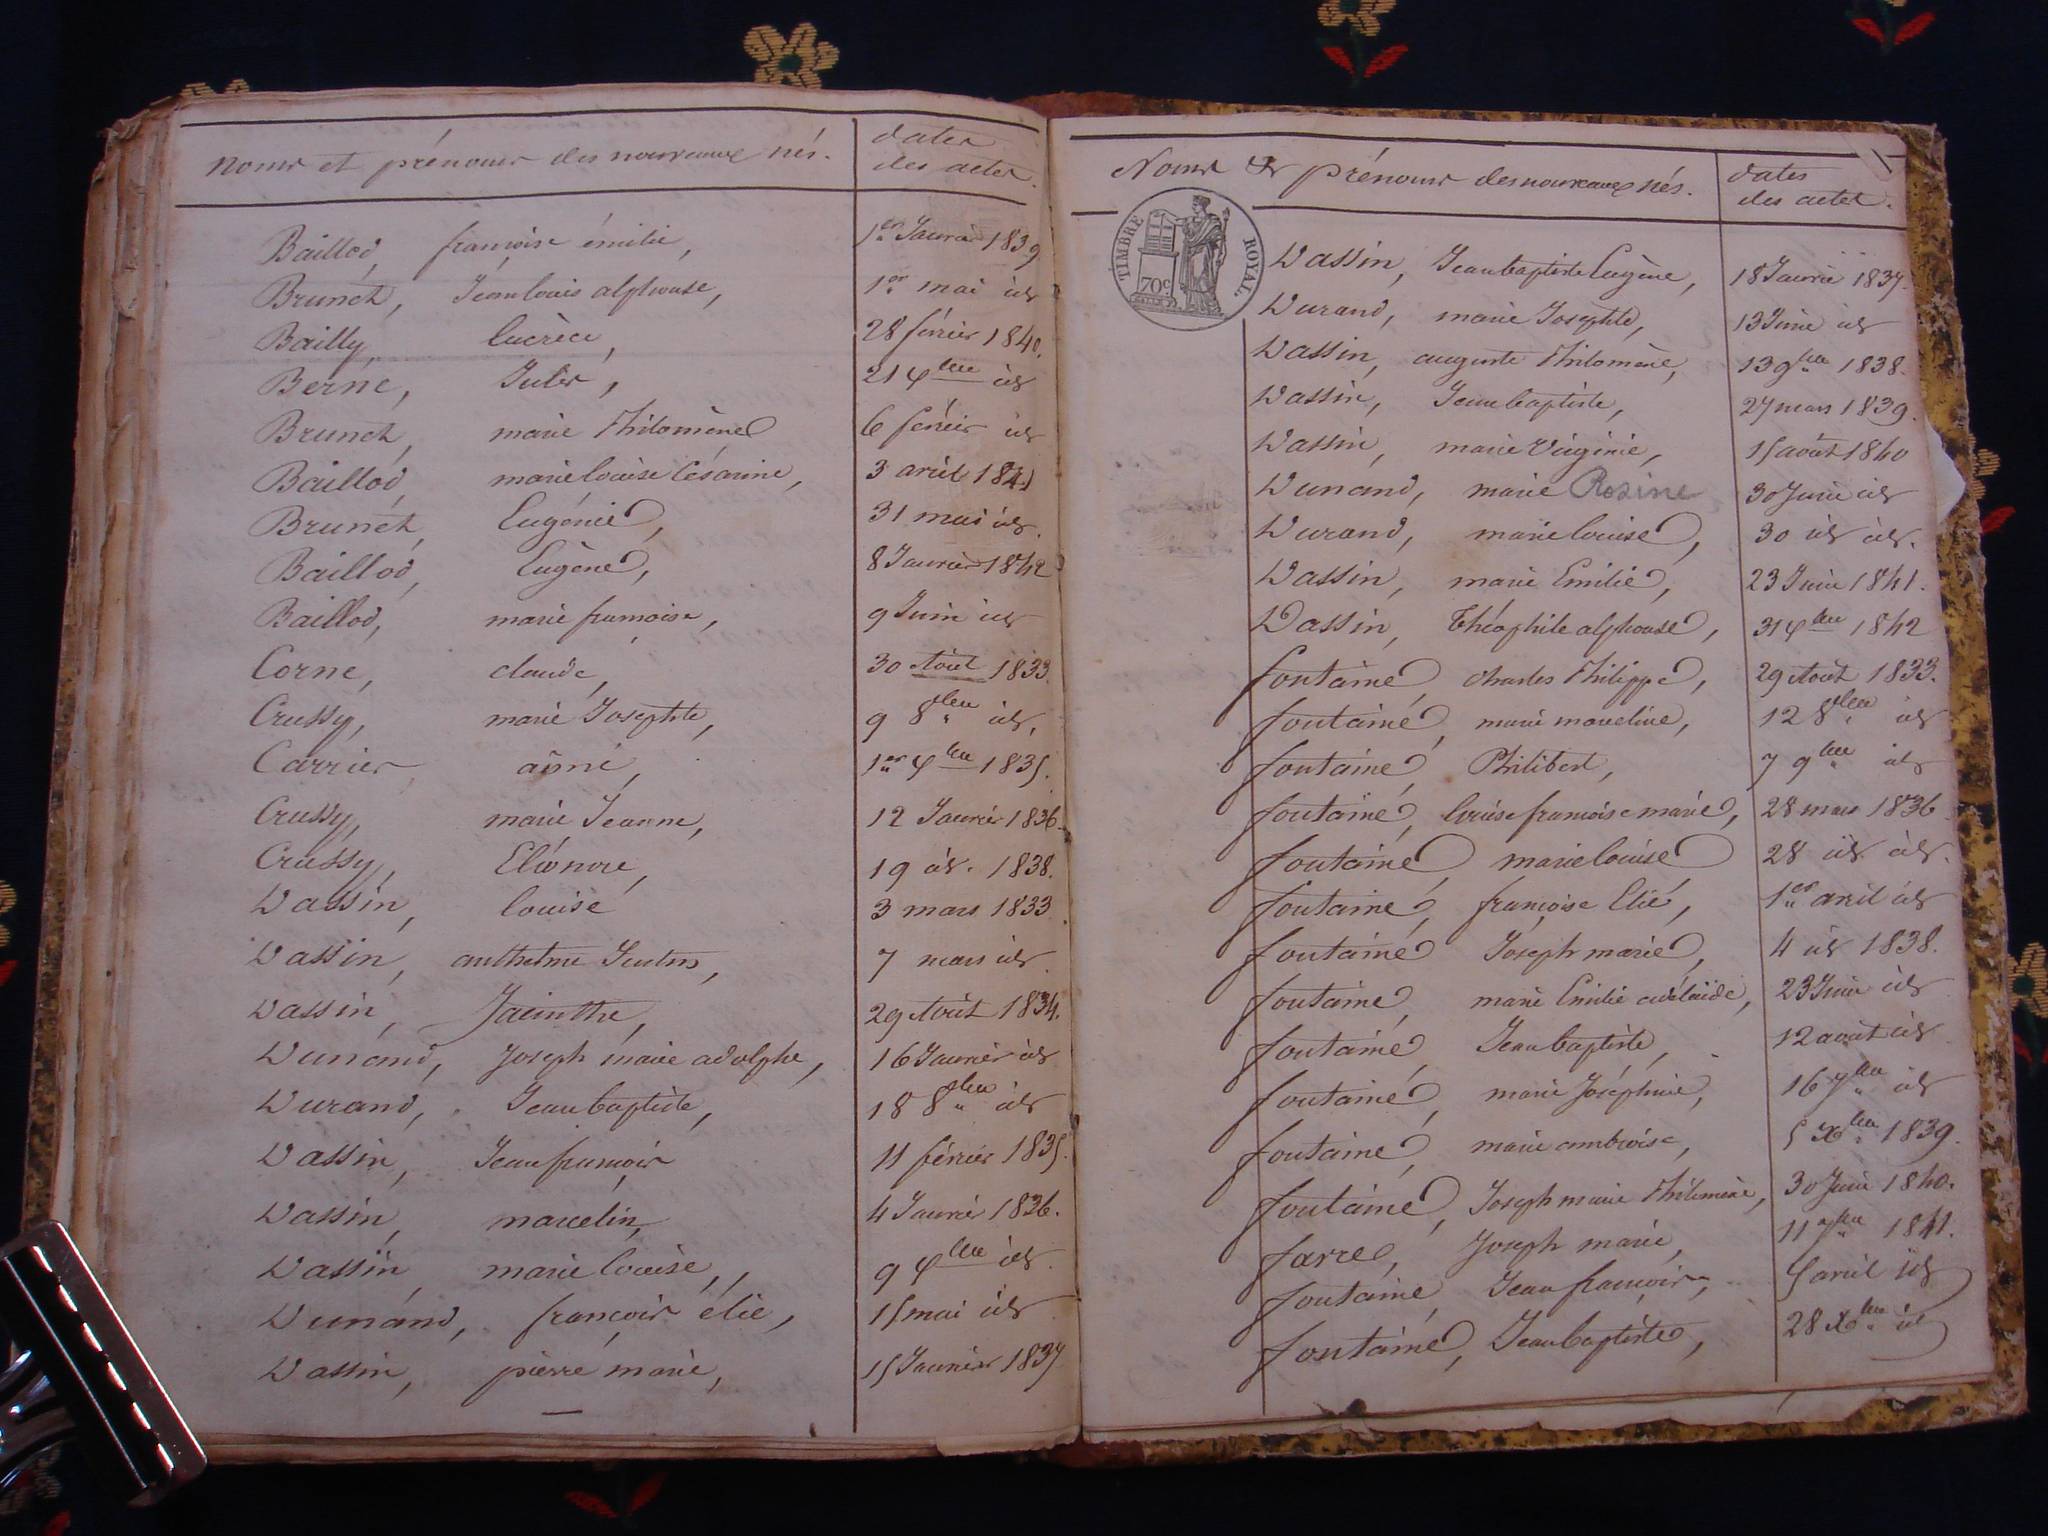 Noms et prénoms des nouveaux nés. dates
des actes.
Baillod, françoise émilie, 1er Janvier 1839
Brunet, Jean louis alphonse, 1er mai id
Bailly, lucrèce, 28 février 1840.
Berne, Jules, 21 id
Brunet, marie Philomène 6 février id
Baillod, marie louise Césarine, 3 avril 1841
Brunet, Eugénie, 31 mai id.
Baillod, Eugène, 8 Janvier 1842
Baillod, marie françoise, 9 Juin id
Corne, claude, 30 Août 1833.
Crussy, marie Josephte, 9 8bre id,
Carrier, aimé, 1er 1835.
Crussy, marie Jeanne, 12 Janvier 1836.
Crussy, Eléonore, 19 id. 1838.
Dassin, louise 3 mars 1833
Dassin, anthelme, 7 mars id
Dassin, Jacinthe, 29 Août 1834.
Dunand, Joseph marie adolphe, 16 Janvier id
Durand, Jean baptiste, 18 8bre id
Dassin, Jean françois 11 février 1835.
Dassin, marcelin, 4 Janvier 1836.
Dassin, marie louise, 9 id
Dunand, françois élie, 15 mai id
Dassin, pierre marie, 15 Janvier 1837
Noms & prénoms des nouveaux nés. dates
des actes.
TIMBRE ROYAL.
70c
Dassin, Jean baptiste Eugène, 18 Janvier 1837.
Durand, marie Josephte, 13 Juin id
Dassin, auguste Philomène, 13 9bre 1838.
Dassin, Jean baptiste, 27 mars 1839.
Dassin, marie Virginie, 15 août 1840
Dunand, marie Rosine 30 Juin id
Durand, marie louise, 30 id id.
Dassin, marie Emilie, 23 Juin 1841.
Dassin, Théophile alphonse, 31 1842
fontaine, charles Philippe, 29 Août 1833.
fontaine, marie marceline, 12 8bre id
fontaine, Philibert, 7 9bre id
fontaine, louise françoise marie, 28 mars 1836
fontaine, marie louise 28 id id.
fontaine, françoise Elie, 1er avril id
fontaine, Joseph marie, 4 id 1838.
fontaine, marie Emilie adélaïde, 23 Juin id
fontaine, Jean baptiste, 12 août id
fontaine, marie Joséphine, 16 7bre id
fontaine, marie ambroise, 5 Xbre 1839.
fontaine, Joseph marie Philomène, 30 Juin 1840.
farre, Joseph marie, 11 7bre 1841.
fontaine, Jean françois, 5 avril id
fontaine, Jean baptiste, 28 Xbre id